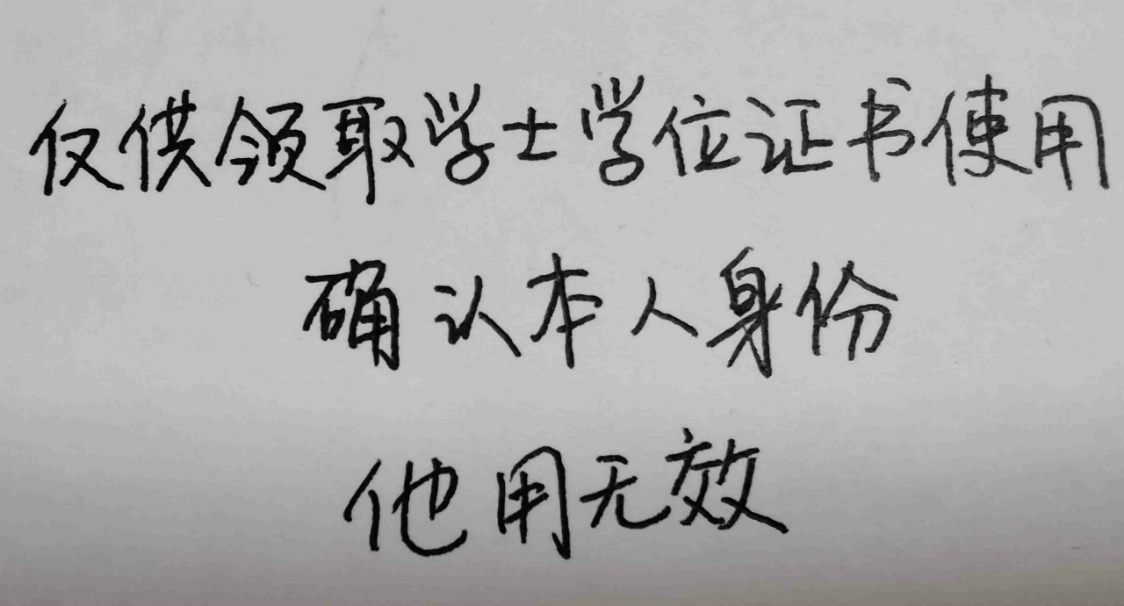 仅供领取学士学位证书使用
确认本人身份
他用无效